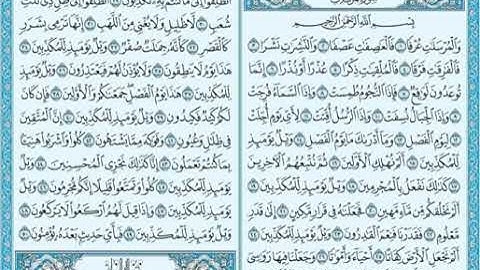 بِسْمِ اللَّهِ الرَّحْمَٰنِ الرَّحِيمِ
وَالْمُرْسَلَٰتِ عُرْفًا ۝ فَالْعَٰصِفَٰتِ عَصْفًا ۝ وَالنَّٰشِرَٰتِ نَشْرًا
۝ فَالْفَٰرِقَٰتِ فَرْقًا ۝ فَالْمُلْقِيَٰتِ ذِكْرًا ۝ عُذْرًا أَوْ نُذْرًا ۝ إِنَّمَا
تُوعَدُونَ لَوَٰقِعٌ ۝ فَإِذَا النُّجُومُ طُمِسَتْ ۝ وَإِذَا السَّمَاءُ فُرِجَتْ
۝ وَإِذَا الْجِبَالُ نُسِفَتْ ۝ وَإِذَا الرُّسُلُ أُقِّتَتْ ۝ لِأَيِّ يَوْمٍ أُجِّلَتْ
۝ لِيَوْمِ الْفَصْلِ ۝ وَمَا أَدْرَىٰكَ مَا يَوْمُ الْفَصْلِ ۝ وَيْلٌ يَوْمَئِذٍ
لِّلْمُكَذِّبِينَ ۝ أَلَمْ نُهْلِكِ الْأَوَّلِينَ ۝ ثُمَّ نُتْبِعُهُمُ الْآخِرِينَ
۝ كَذَٰلِكَ نَفْعَلُ بِالْمُجْرِمِينَ ۝ وَيْلٌ يَوْمَئِذٍ لِّلْمُكَذِّبِينَ ۝
أَلَمْ نَخْلُقكُّم مِّن مَّاءٍ مَّهِينٍ ۝ فَجَعَلْنَٰهُ فِي قَرَارٍ مَّكِينٍ ۝ إِلَىٰ قَدَرٍ
مَّعْلُومٍ ۝ فَقَدَرْنَا فَنِعْمَ الْقَٰدِرُونَ ۝ وَيْلٌ يَوْمَئِذٍ لِّلْمُكَذِّبِينَ ۝
أَلَمْ نَجْعَلِ الْأَرْضَ كِفَاتًا ۝ أَحْيَاءً وَأَمْوَٰتًا ۝ وَجَعَلْنَا فِيهَا رَوَٰسِيَ
شُعَبٍ ۝ لَّا ظَلِيلٍ وَلَا يُغْنِي مِنَ اللَّهَبِ ۝ إِنَّهَا تَرْمِي بِشَرَرٍ
كَالْقَصْرِ ۝ كَأَنَّهُ جِمَٰلَتٌ صُفْرٌ ۝ وَيْلٌ يَوْمَئِذٍ لِّلْمُكَذِّبِينَ ۝
هَٰذَا يَوْمُ لَا يَنطِقُونَ ۝ وَلَا يُؤْذَنُ لَهُمْ فَيَعْتَذِرُونَ ۝ وَيْلٌ يَوْمَئِذٍ
لِّلْمُكَذِّبِينَ ۝ هَٰذَا يَوْمُ الْفَصْلِ جَمَعْنَٰكُمْ وَالْأَوَّلِينَ ۝ فَإِن كَانَ
لَكُمْ كَيْدٌ فَكِيدُونِ ۝ وَيْلٌ يَوْمَئِذٍ لِّلْمُكَذِّبِينَ ۝ إِنَّ الْمُتَّقِينَ
فِي ظِلَٰلٍ وَعُيُونٍ ۝ وَفَوَٰكِهَ مِمَّا يَشْتَهُونَ ۝ كُلُوا وَاشْرَبُوا هَنِيئًا
بِمَا كُنتُمْ تَعْمَلُونَ ۝ إِنَّا كَذَٰلِكَ نَجْزِي الْمُحْسِنِينَ ۝ وَيْلٌ
يَوْمَئِذٍ لِّلْمُكَذِّبِينَ ۝ كُلُوا وَتَمَتَّعُوا قَلِيلًا إِنَّكُم مُّجْرِمُونَ ۝ وَيْلٌ
يَوْمَئِذٍ لِّلْمُكَذِّبِينَ ۝ وَإِذَا قِيلَ لَهُمُ ارْكَعُوا لَا يَرْكَعُونَ ۝
وَيْلٌ يَوْمَئِذٍ لِّلْمُكَذِّبِينَ ۝ فَبِأَيِّ حَدِيثٍ بَعْدَهُ يُؤْمِنُونَ ۝